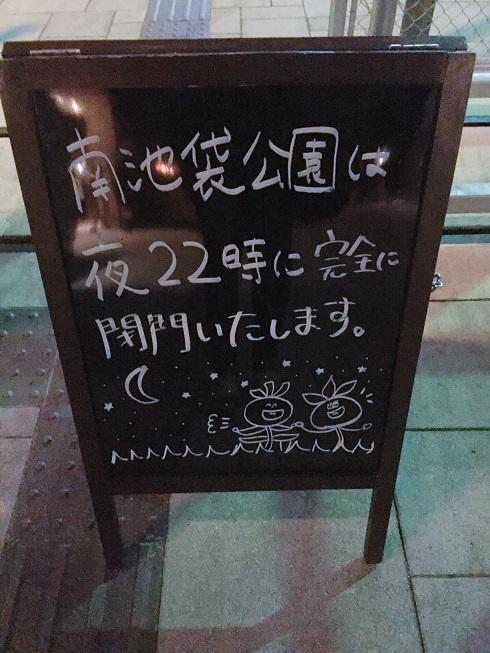 南池袋公園は
夜22時に完全に
閉門いたします。